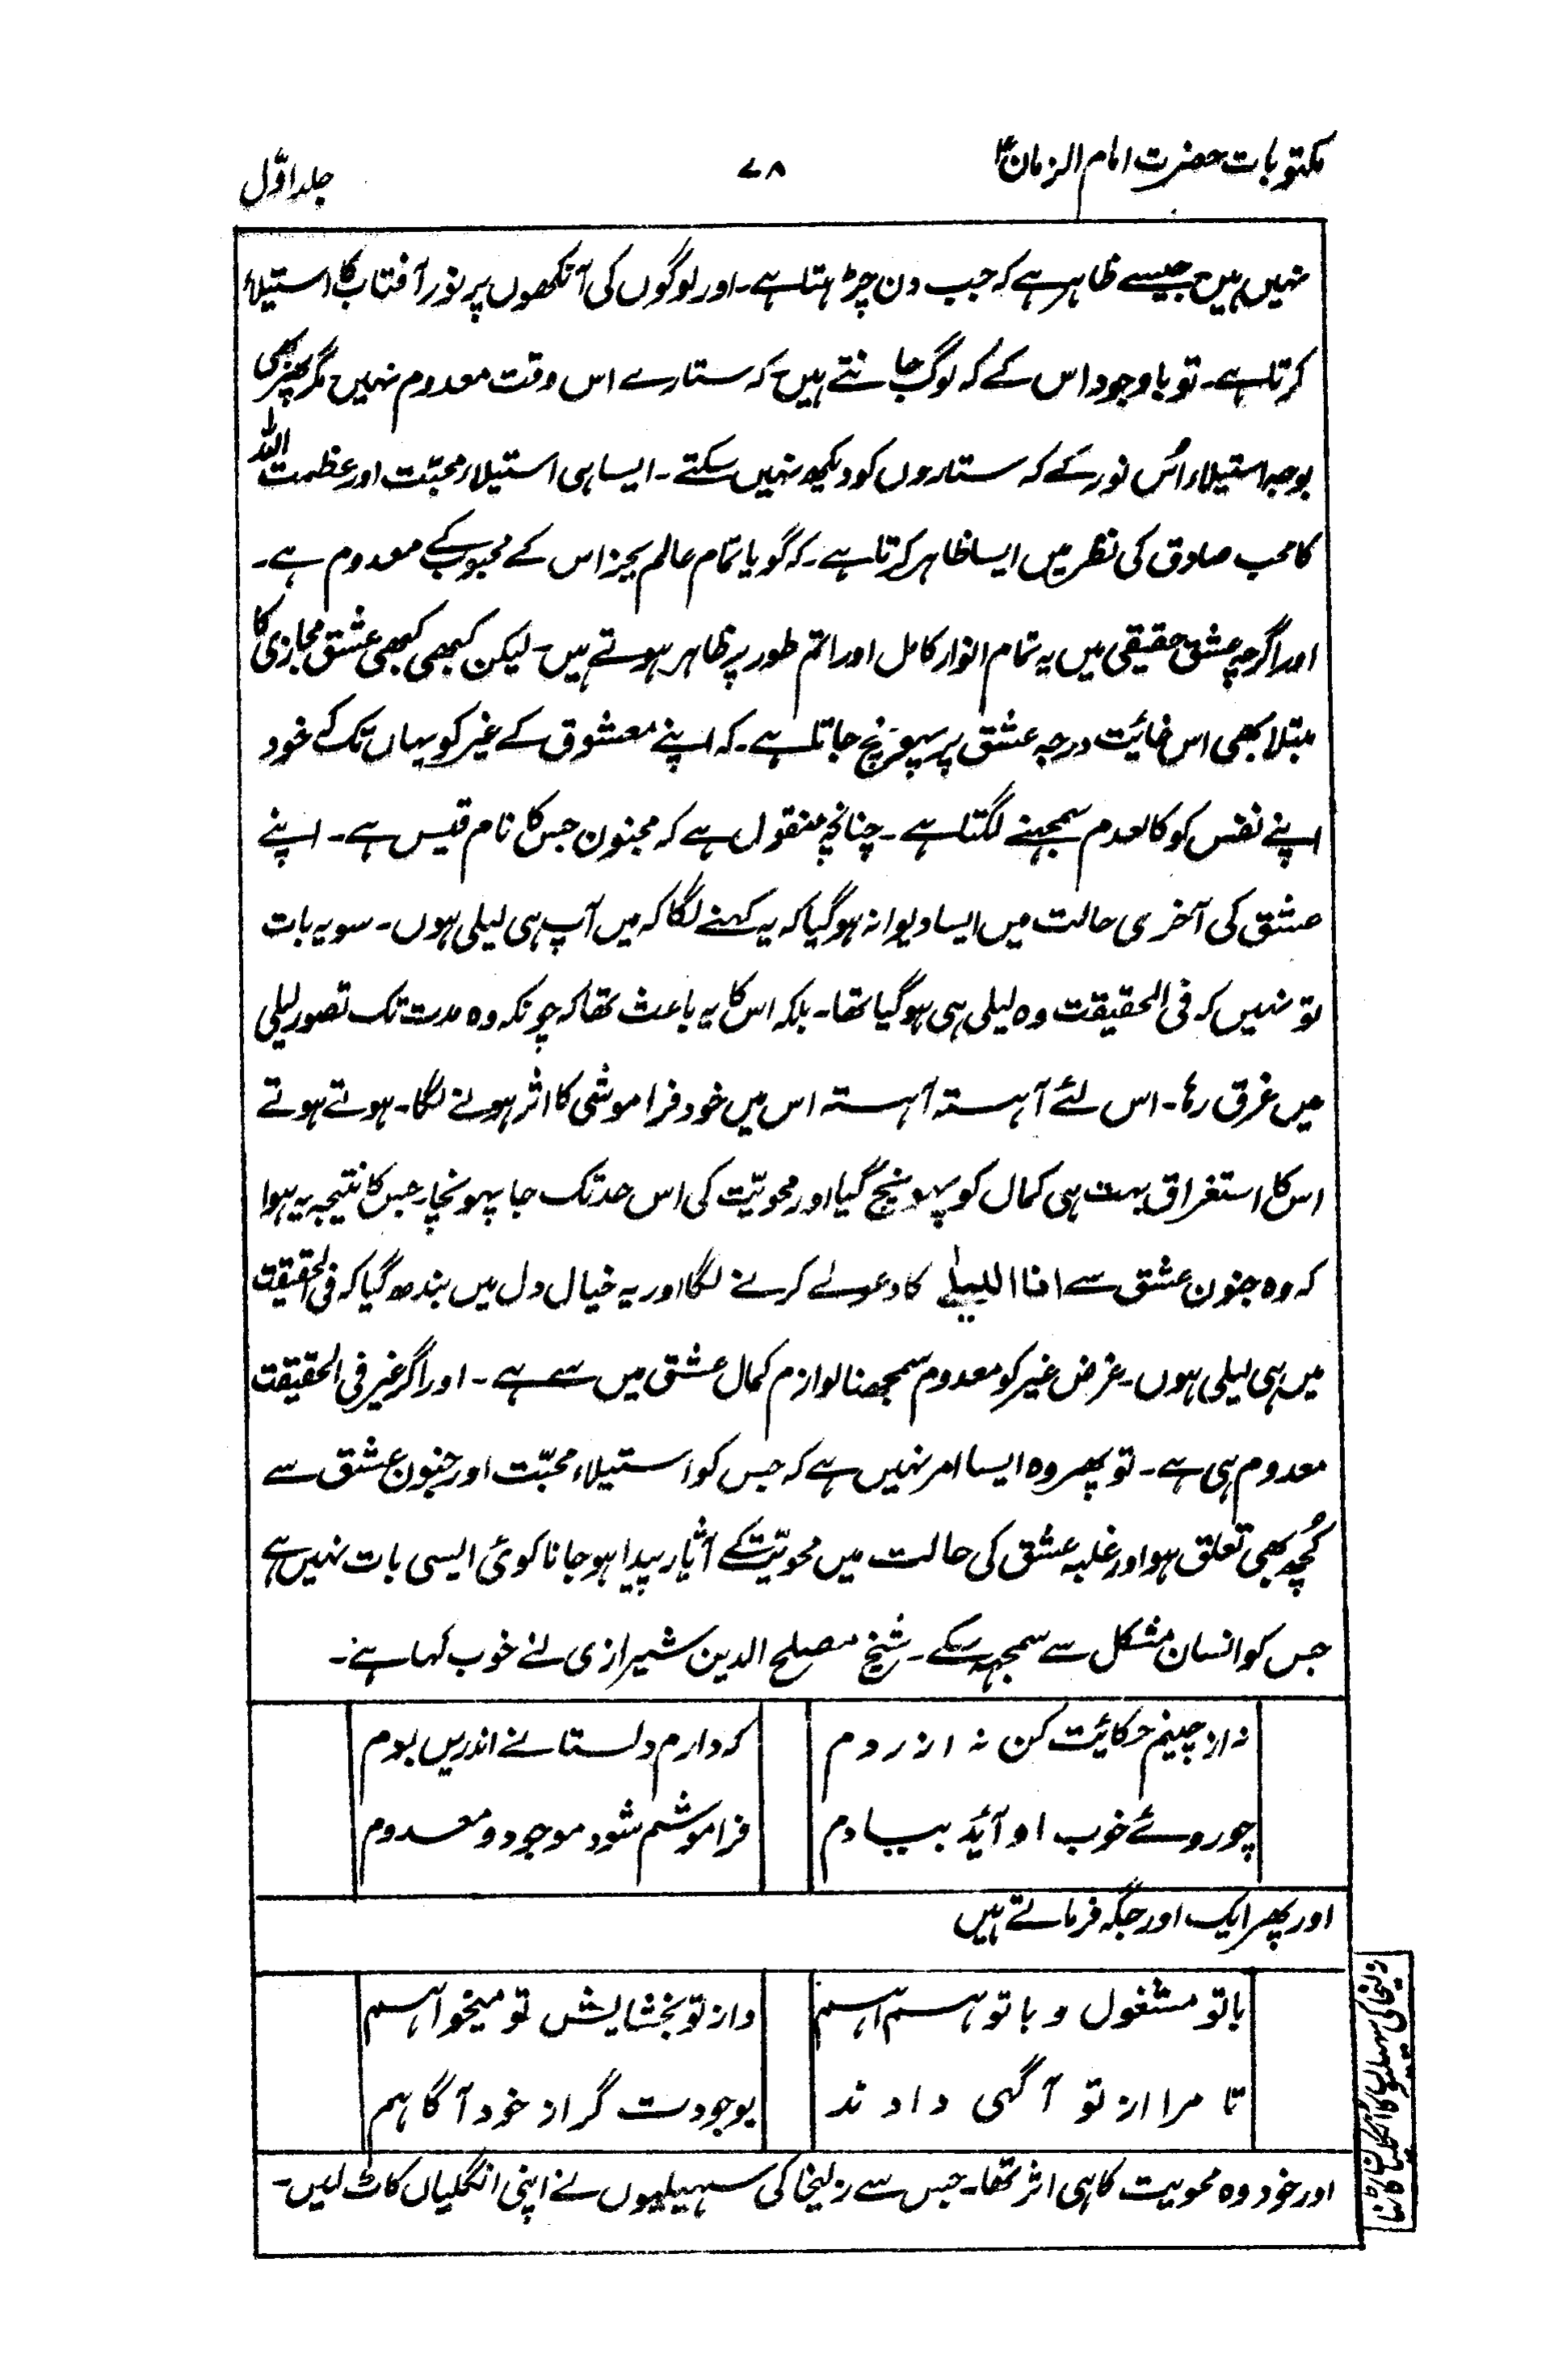 مکتوبات حضرت امام الزمانؑ
۷۸
جلد اوّل
نہیں ہیں جیسے ظاہر ہے کہ جب دن چڑہتا ہے۔ اور لوگوں کی آنکھوں پر نور آفتاب کا استیلاء
کرتا ہے۔ تو باوجود اس کے کہ لوگ جانتے ہیں کہ ستارے اس وقت معدوم نہیں مگر پھر بھی
بوجہ استیلاء اُس نور کے کہ ستاروں کو دیکھ نہیں سکتے۔ ایسا ہی استیلاء محبّت اور عظمت اللہ
کا محب صادق کی نظر میں ایسا ظاہر کرتا ہے۔ کہ گویا تمام عالم بجز اس کے محبوب کے معدوم ہے۔
اور اگرچہ عشق حقیقی میں یہ تمام انوار کامل اور اتم طور پر ظاہر ہوتے ہیں۔ لیکن کبھی کبھی عشق مجازی کا
مبتلا بھی اس غائیت درجہ عشق پر پہونچ جاتا ہے۔ کہ اپنے معشوق کے غیر کو یہاں تک کے خود
اپنے نفس کو کالعدم سمجہنے لگتا ہے۔ چنانچہ منقول ہے کہ مجنون جس کا نام قیس ہے۔ اپنے
عشق کی آخری حالت میں ایسا دیوانہ ہو گیا کہ یہ کہنے لگا کہ میں آپ ہی لیلی ہوں۔ سو یہ بات
تو نہیں کہ فی الحقیقت وہ لیلی ہی ہو گیا تھا۔ بلکہ اس کا یہ باعث تھا کہ چونکہ وہ مدت تک تصور لیلی
میں غرق رہا۔ اس لئے آہستہ آہستہ اس میں خود فراموشی کا اثر ہونے لگا۔ ہوتے ہوتے
اس کا استغراق بہت ہی کمال کو پہونچ گیا اور محویّت کی اس حد تک جا پہونچا۔ جس کا نتیجہ یہ ہوا
کہ وہ جنون عشق سے انا اللیلےٰ کا دعوےٰ کرنے لگا اور یہ خیال دل میں بندھ گیا کہ فی الحقیقت
میں ہی لیلی ہوں۔ غرض غیر کو معدوم سمجھنا لوازم کمال عشق میں سے ہے۔ اور اگر غیر فی الحقیقت
معدوم ہی ہے۔ تو پھر وہ ایسا امر نہیں ہے کہ جس کو استیلاء محبّت اور جنون عشق سے
کُچھ بھی تعلق ہو اور غلبہ عشق کی حالت میں محویّت کے آثار پیدا ہو جانا کوئی ایسی بات نہیں ہے
جس کو انسان مشکل سے سمجہہ سکے۔ شیخ مصلح الدین شیرازی نے خوب کہا ہے۔
نہ از چینم حکائیت کن نہ از روم
که دارم دلستانے اندریں بوم
چو روئے خوب او آئد بیادم
فراموشم شود موجود و معدوم
اور پھر ایک اور جگہ فرماتے ہیں
باتو مشغول و باتو ہمراہم
واز تو بخشایش تو میخواہم
تا مرا از تو آگہی دادند
بوجودت گر از خود آگاہم
اور خود وہ محویت کا ہی اثر تھا۔ جس سے زلیخا کی سہیلیوں نے اپنی انگلیاں کاٹ لیں۔
زلیخا کی سہیلیوں کا انگلیاں کاٹنا